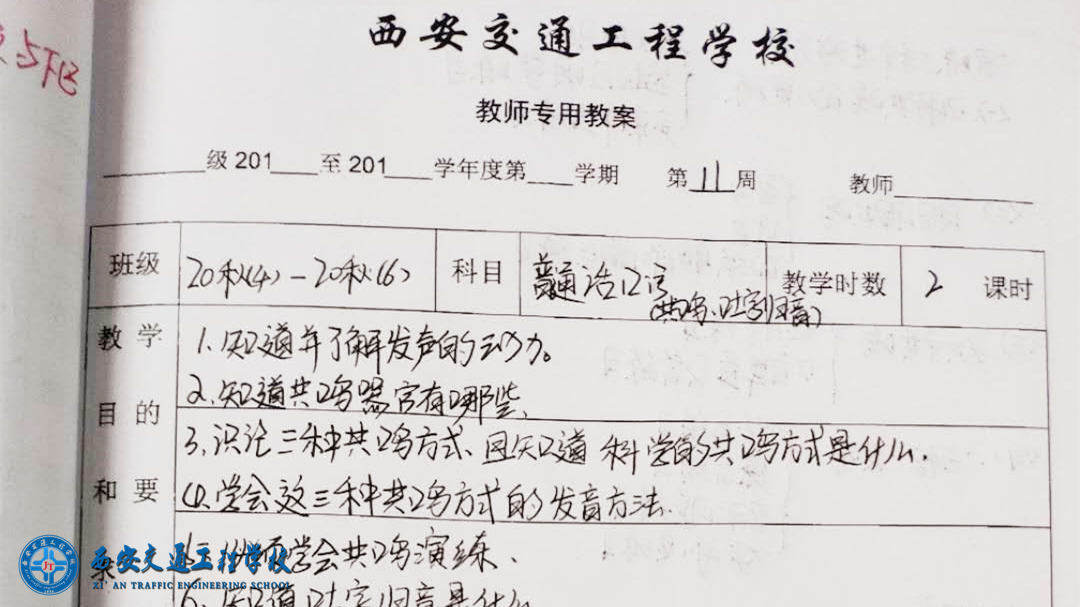 西安交通工程学校
教师专用教案
级 201 至 201 学年度第 学期 第 11 周 教师
班级 20秋(4) - 20秋(6) 科目 普通话口语 教学时数 2 课时
(共鸣、吐字归音)
教学目的和要
1. 知道并了解发声的动力。
2. 知道共鸣器官有哪些、
3. 识记三种共鸣方式、且知道科学的共鸣方式是什么.
4. 学会这三种共鸣方式的发音方法.
学会共鸣演练、
6. 知道吐字归音是什么
西安交通工程学校
XI' AN TRAFFIC ENGINEERING SCHOOL
JT